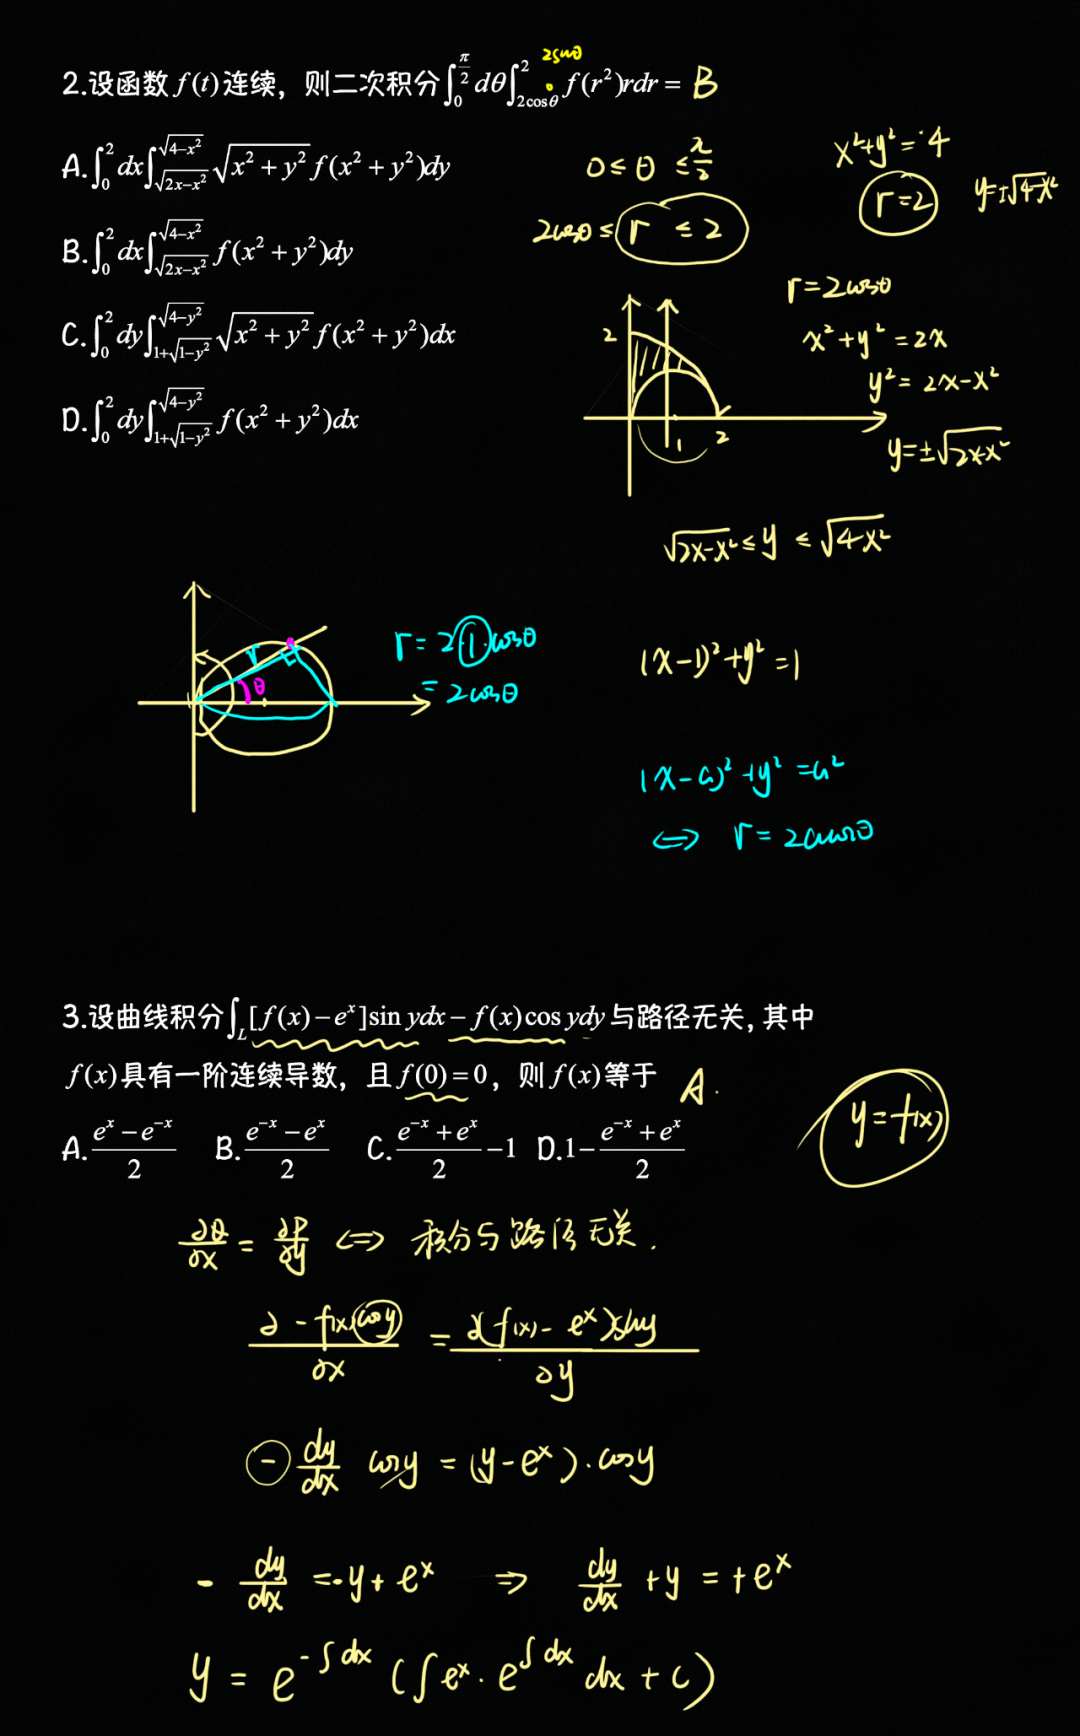 2sinθ
2.设函数 f(t)连续，则二次积分∫_0^{π/2} dθ∫_{2cosθ}^2 f(r²)rdr = B
0
A.∫_0^2 dx∫_{√(2x−x²)}^{√(4−x²)} √(x²+y²) f(x²+y²)dy
B.∫_0^2 dx∫_{√(2x−x²)}^{√(4−x²)} f(x²+y²)dy
C.∫_0^2 dy∫_{1+√(1−y²)}^{√(4−y²)} √(x²+y²) f(x²+y²)dx
D.∫_0^2 dy∫_{1+√(1−y²)}^{√(4−y²)} f(x²+y²)dx
0 ≤ θ ≤ π/2
2cosθ ≤ r ≤ 2
x²+y²=4
r=2
y=±√(4-x²)
r=2cosθ
x²+y²=2x
y²=2x-x²
y=±√(2x-x²)
2
1
2
√(2x-x²) ≤ y ≤ √(4-x²)
(x-1)²+y²=1
r
θ
r=2·1·cosθ
=2cosθ
(x-a)²+y²=a²
⇔ r=2acosθ
3.设曲线积分∫_L [f(x)−e^x]sin ydx − f(x)cos ydy与路径无关,其中
f(x)具有一阶连续导数，且f(0)=0，则f(x)等于 A.
A.(e^x−e^{−x})/2 B.(e^{−x}−e^x)/2 C.(e^{−x}+e^x)/2 −1 D.1−(e^{−x}+e^x)/2
y=f(x)
∂Q/∂x = ∂P/∂y ⇔ 积分与路径无关.
∂-f(x)cosy/∂x = ∂(f(x)-e^x)siny/∂y
- dy/dx cosy = (y-e^x)·cosy
- dy/dx = -y+e^x ⇒ dy/dx +y = +e^x
y = e^{-∫dx} (∫e^x·e^{∫dx} dx + C)